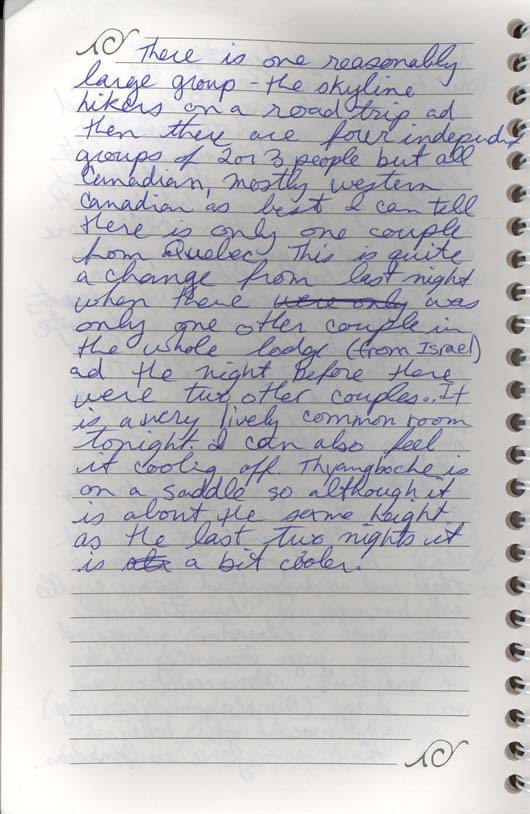 There is one reasonably
large group - the skyline
hikers on a road trip ad
then there are four independent
groups of 2 or 3 people but all
Canadian, mostly western
Canadian as best I can tell
there is only one couple
from Quebec. This is quite
a change from last night
when there were only was
only one other couple in
the whole lodge (from Israel)
ad the night before there
were two other couples.. It
is a very lively common room
tonight. I can also feel
it coolig off. Thyangboche is
on a saddle so although it
is about the same height
as the last two nights it
is a bit cooler.